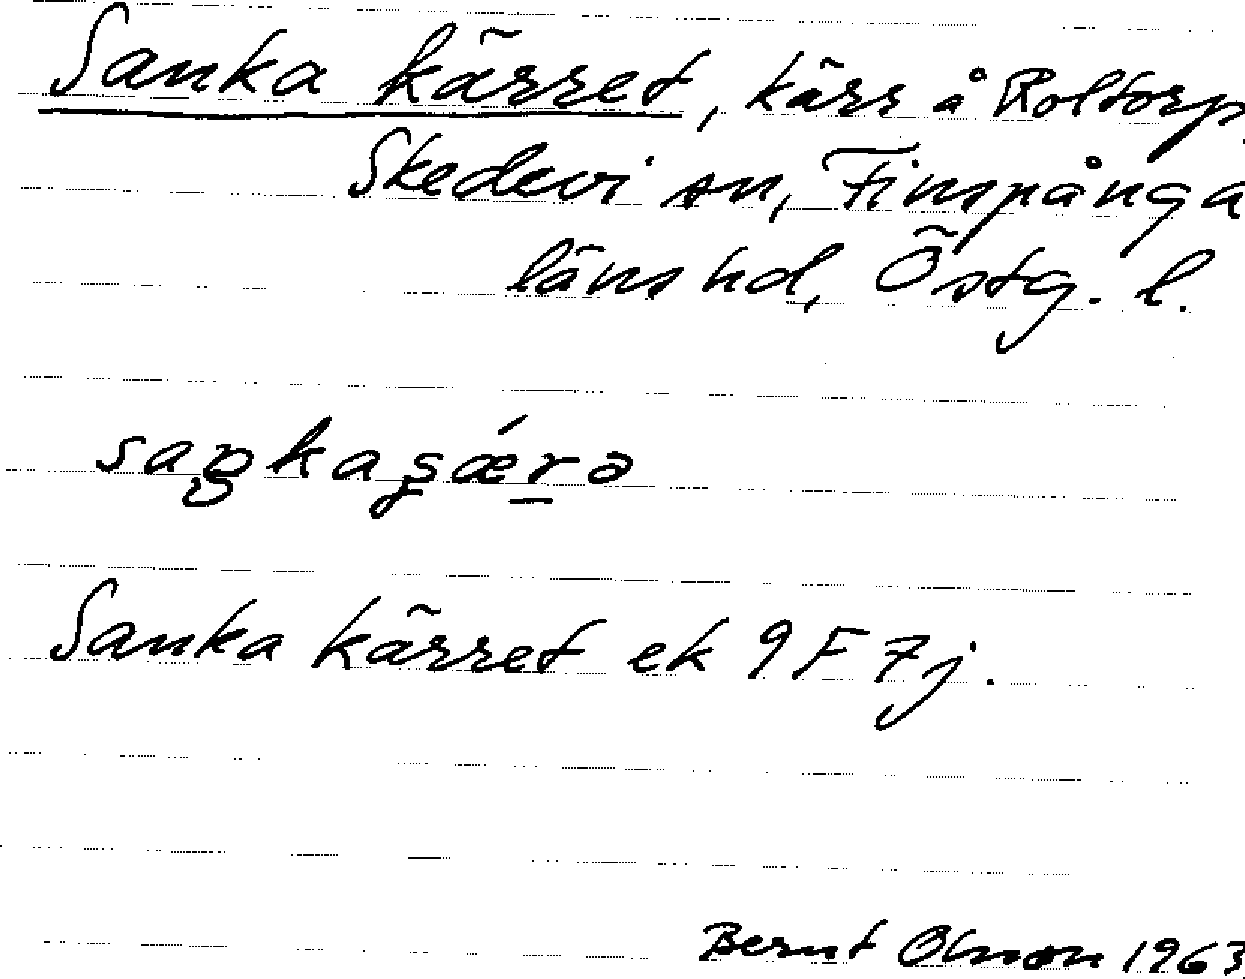 Sanka kärret, kärr å Roltorp,
Skedevi sn, Finspånga
läns hd, Östg. l.
Sanka kärret ek 9F7j.
Bernt Olsson 1963